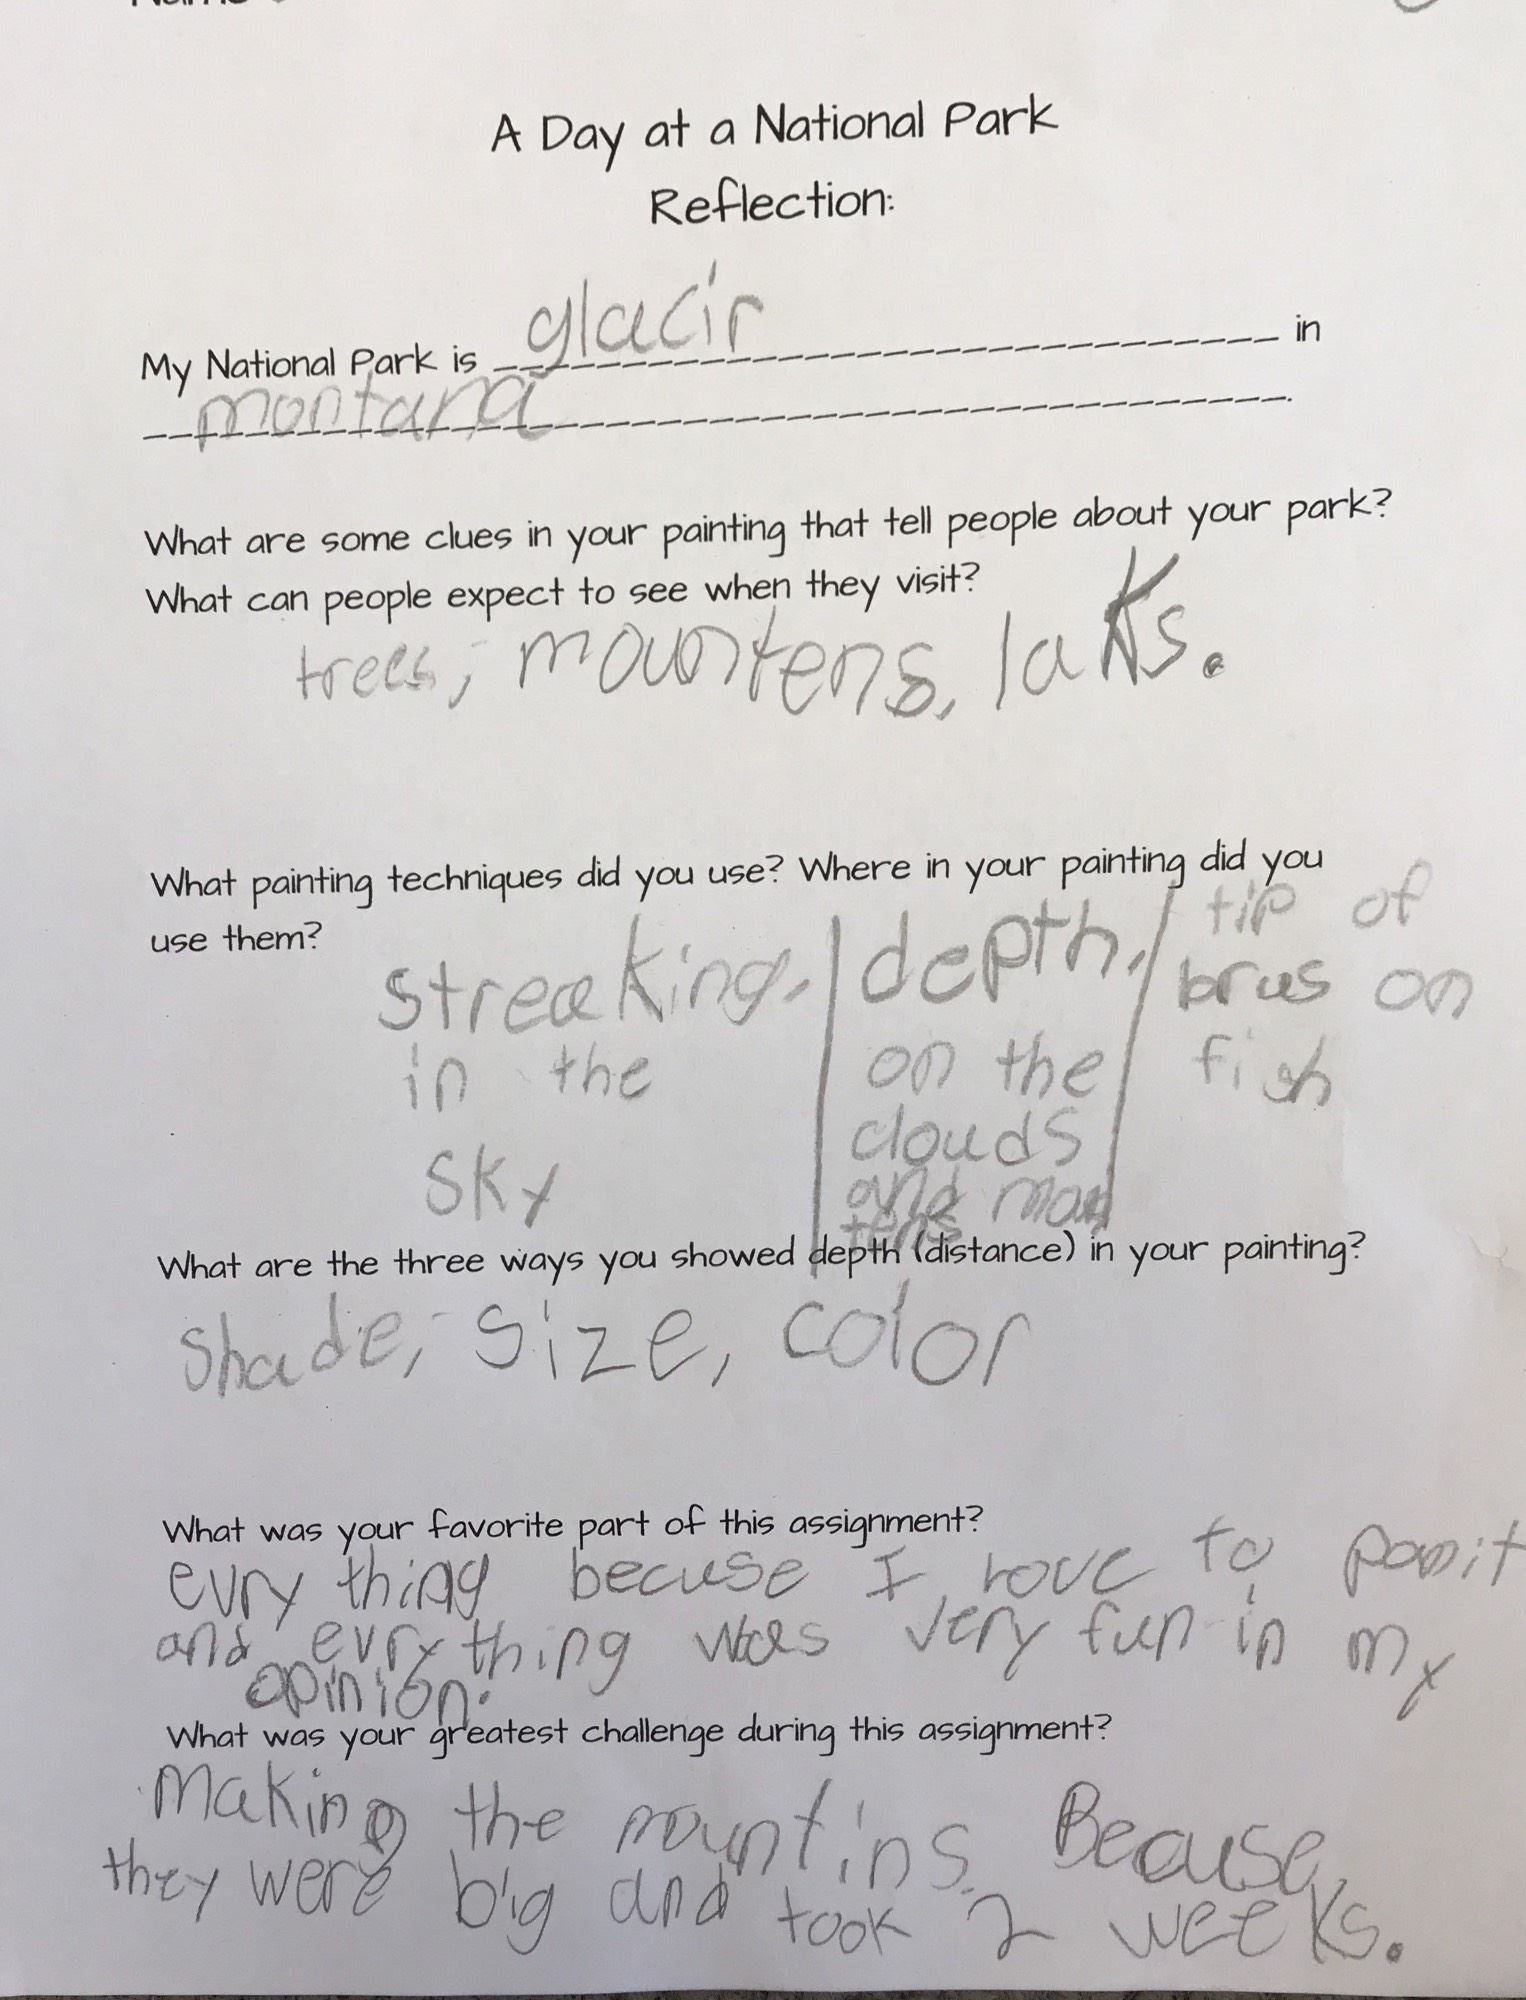 A Day at a National Park
Reflection:
My National Park is glacir in
montana
What are some clues in your painting that tell people about your park?
What can people expect to see when they visit?
trees, mountens, laks.
What painting techniques did you use? Where in your painting did you
use them?
streaking,
in the
sky
depth,
on the
clouds
and moun
tens
tip of
brus on
fish
What are the three ways you showed depth (distance) in your painting?
shade, size, color
What was your favorite part of this assignment?
evry thing becuse I love to paint
and evry thing was very fun in my
opinion.
What was your greatest challenge during this assignment?
Making the mountins. Beause,
they were big and took 2 weeks.